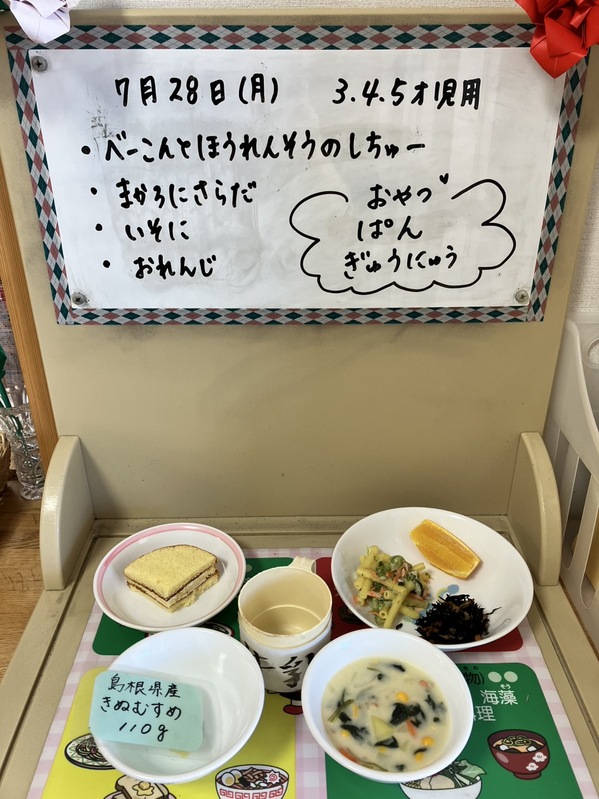 7月28日(月) 3.4.5才児用
・べーこんとほうれんそうのしちゅー
・まかろにさらだ
・いそに
・おれんじ
おやつ♥
ぱん
ぎゅうにゅう
島根県産
きぬむすめ
110g
物)
海藻
理